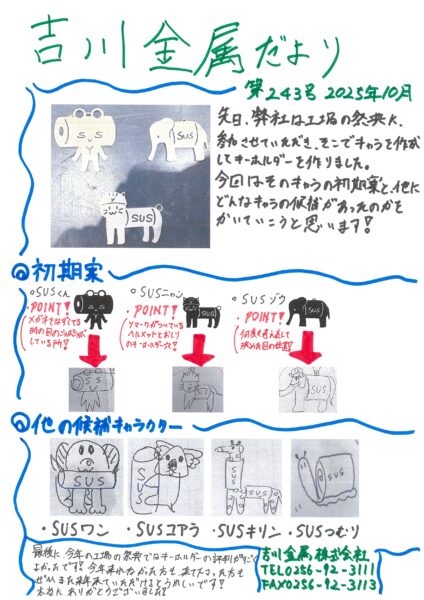 吉川金属だより
第243号 2025年10月
先日、弊社は工場の祭典に
参加させていただき、そこでキャラを作成
してキーホルダーを作りました。
今回はそのキャラの初期案と、他に
どんなキャラの候補があったのかを
かいていこうと思います!
SUS
SUS
SUS
◎初期案
○SUSくん
・POINT!
メガネをはずしてる
所の目のジャボジャボ
している所!
○SUSニャン
・POINT!
アマークがついている
ヘルメットとおしり
のキーホルダーアナ!
○SUSゾウ
・POINT!
何度も考え直して
決めた目の位置!
SUS
SUS
◎他の候補キャラクター
SUS
SUS
SUS
SUS
・SUSワン
・SUSコアラ
・SUSキリン
・SUSつむり
最後に、今年の工場の祭典ではキーホルダーの評判がすごく
よかったです!今年来れなかった方も、来てくれた方も
ぜひまた来年来ていただけるとうれしいです!
本当にありがとうございました!
吉川金属株式会社
TEL0256-92-3111
FAX0256-92-3113